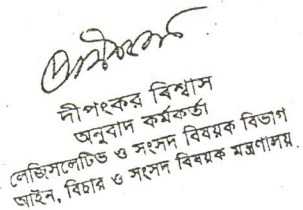 দীপংকর বিশ্বাস
অনুবাদ কর্মকর্তা
লেজিসলেটিভ ও সংসদ বিষয়ক বিভাগ
আইন, বিচার ও সংসদ বিষয়ক মন্ত্রণালয়.